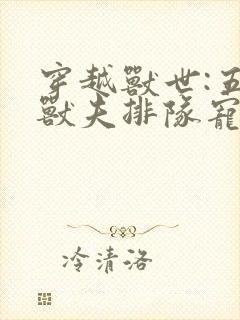 穿越獸世:五
獸夫排隊寵
冷清洛